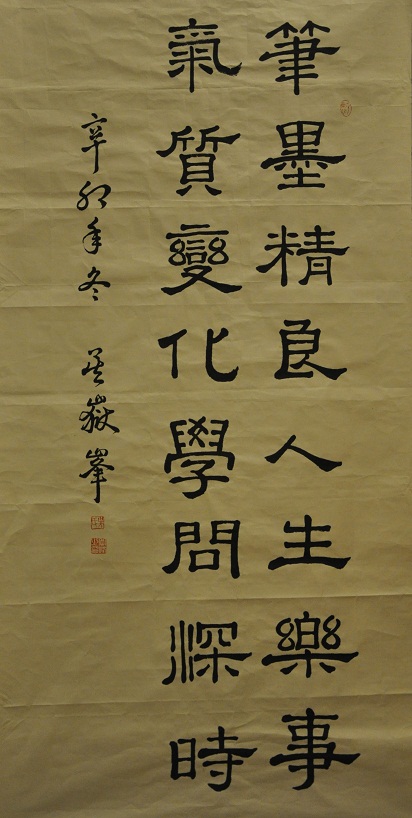 筆墨精良人生樂事
氣質變化學問深時
辛卯年冬 吳嶽峯